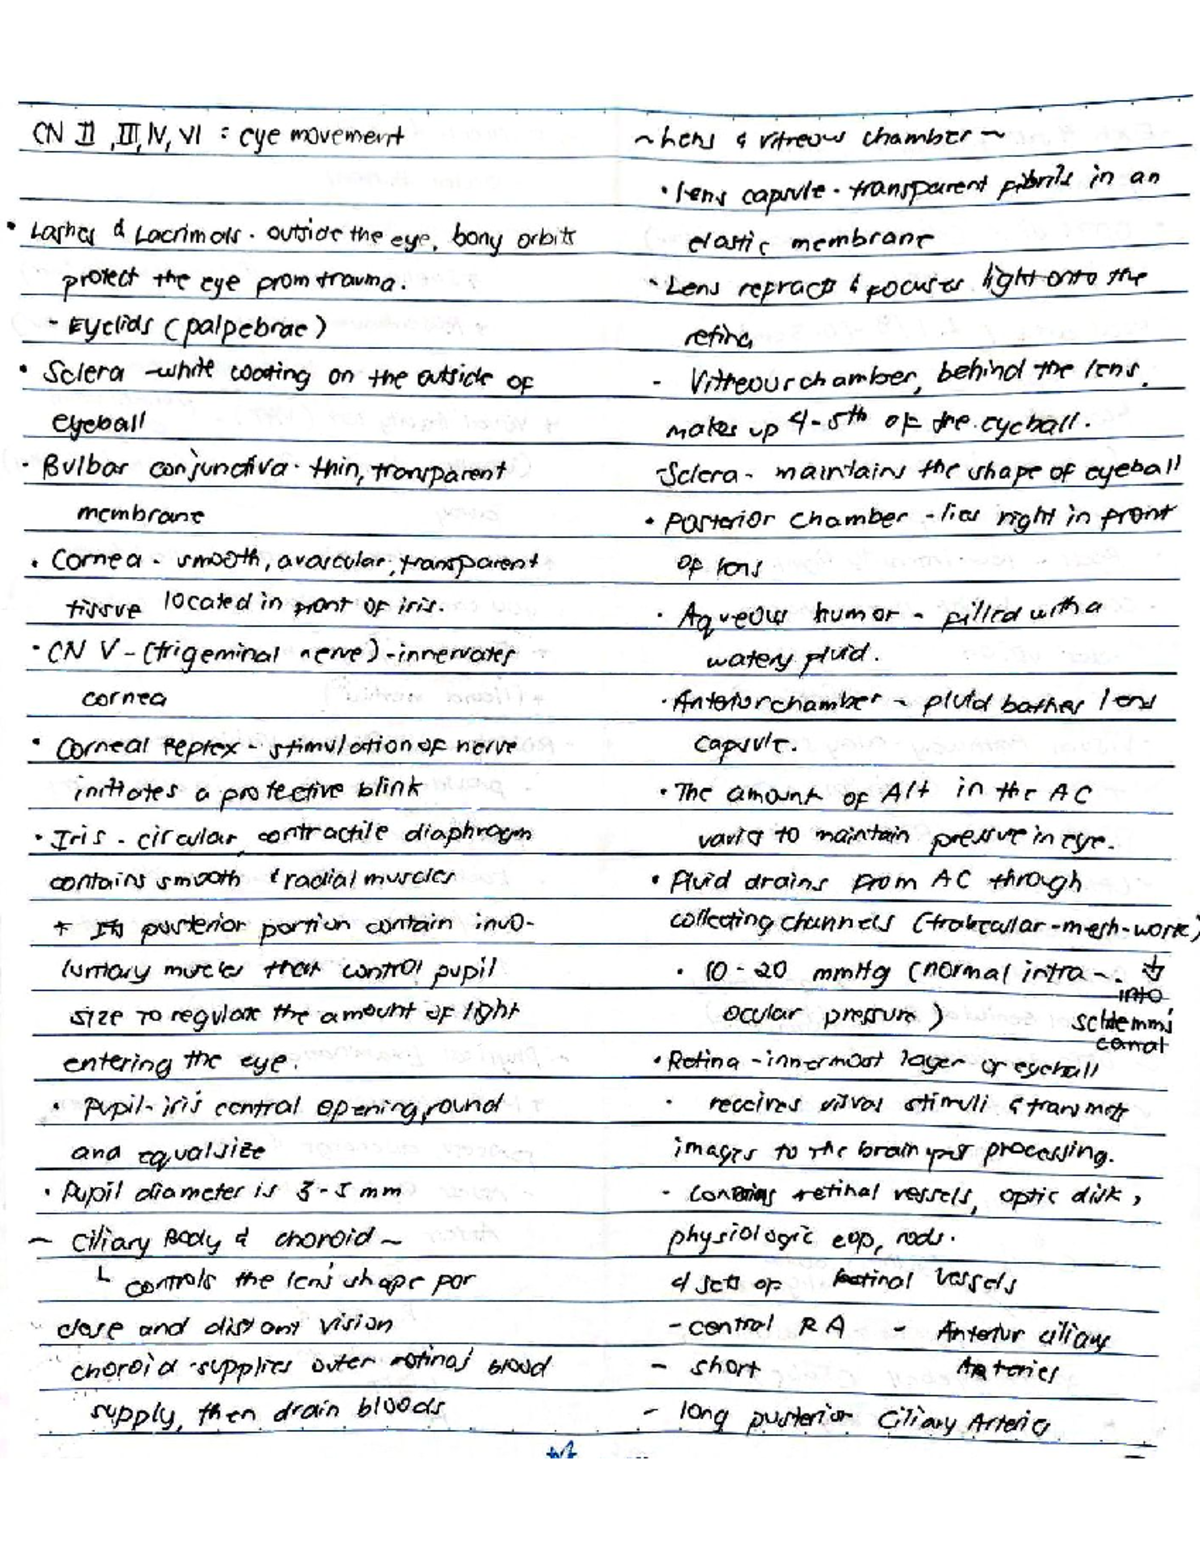 CN II, III, IV, VI : eye movement
• Lashes & Lacrimals - outside the eye, bony orbits
protect the eye from trauma.
- Eyelids (palpebrae)
• Sclera - white coating on the outside of
eyeball
• Bulbar conjunctiva - thin, transparent
membrane
• Cornea - smooth, avascular, transparent
tissue located in front of iris.
• CN V - (trigeminal nerve) - innervates
cornea
• Corneal Reflex - stimulation of nerve
initiates a protective blink
• Iris - circular, contractile diaphragm
contains smooth & radial muscles
+ Its posterior portion contain invo-
luntary muscles that control pupil
size to regulate the amount of light
entering the eye.
• Pupil - iris central opening, round
and equal size
• Pupil diameter is 3-5 mm
~ Ciliary Body & choroid ~
└ controls the lens shape for
close and distant vision
choroid - supplies outer retina's blood
supply, then drain bloods
~ Lens & vitreous chamber ~
• Lens capsule - transparent fibrils in an
elastic membrane
• Lens refracts & focuses light onto the
retina
- Vitreous chamber, behind the lens,
makes up 4-5th of the eyeball.
- Sclera - maintains the shape of eyeball
• Posterior chamber - lies right in front
of lens
• Aqueous humor - filled with a
watery fluid.
• Anterior chamber - fluid bathes lens
capsule.
• The amount of AH in the AC
varies to maintain pressure in eye.
• Fluid drains from AC through
collecting channels (trabecular-mesh-work)
↓
into
schlemm's
canal
• 10-20 mmHg (normal intra-
ocular pressure)
• Retina - innermost layer of eyeball
• receives visual stimuli & transmits
images to the brain for processing.
- Contains retinal vessels, optic disk,
physiologic cup, rods.
4 sets of Retinal Vessels
- central RA - Anterior ciliary
Arteries
- short
- long posterior Ciliary Arteries